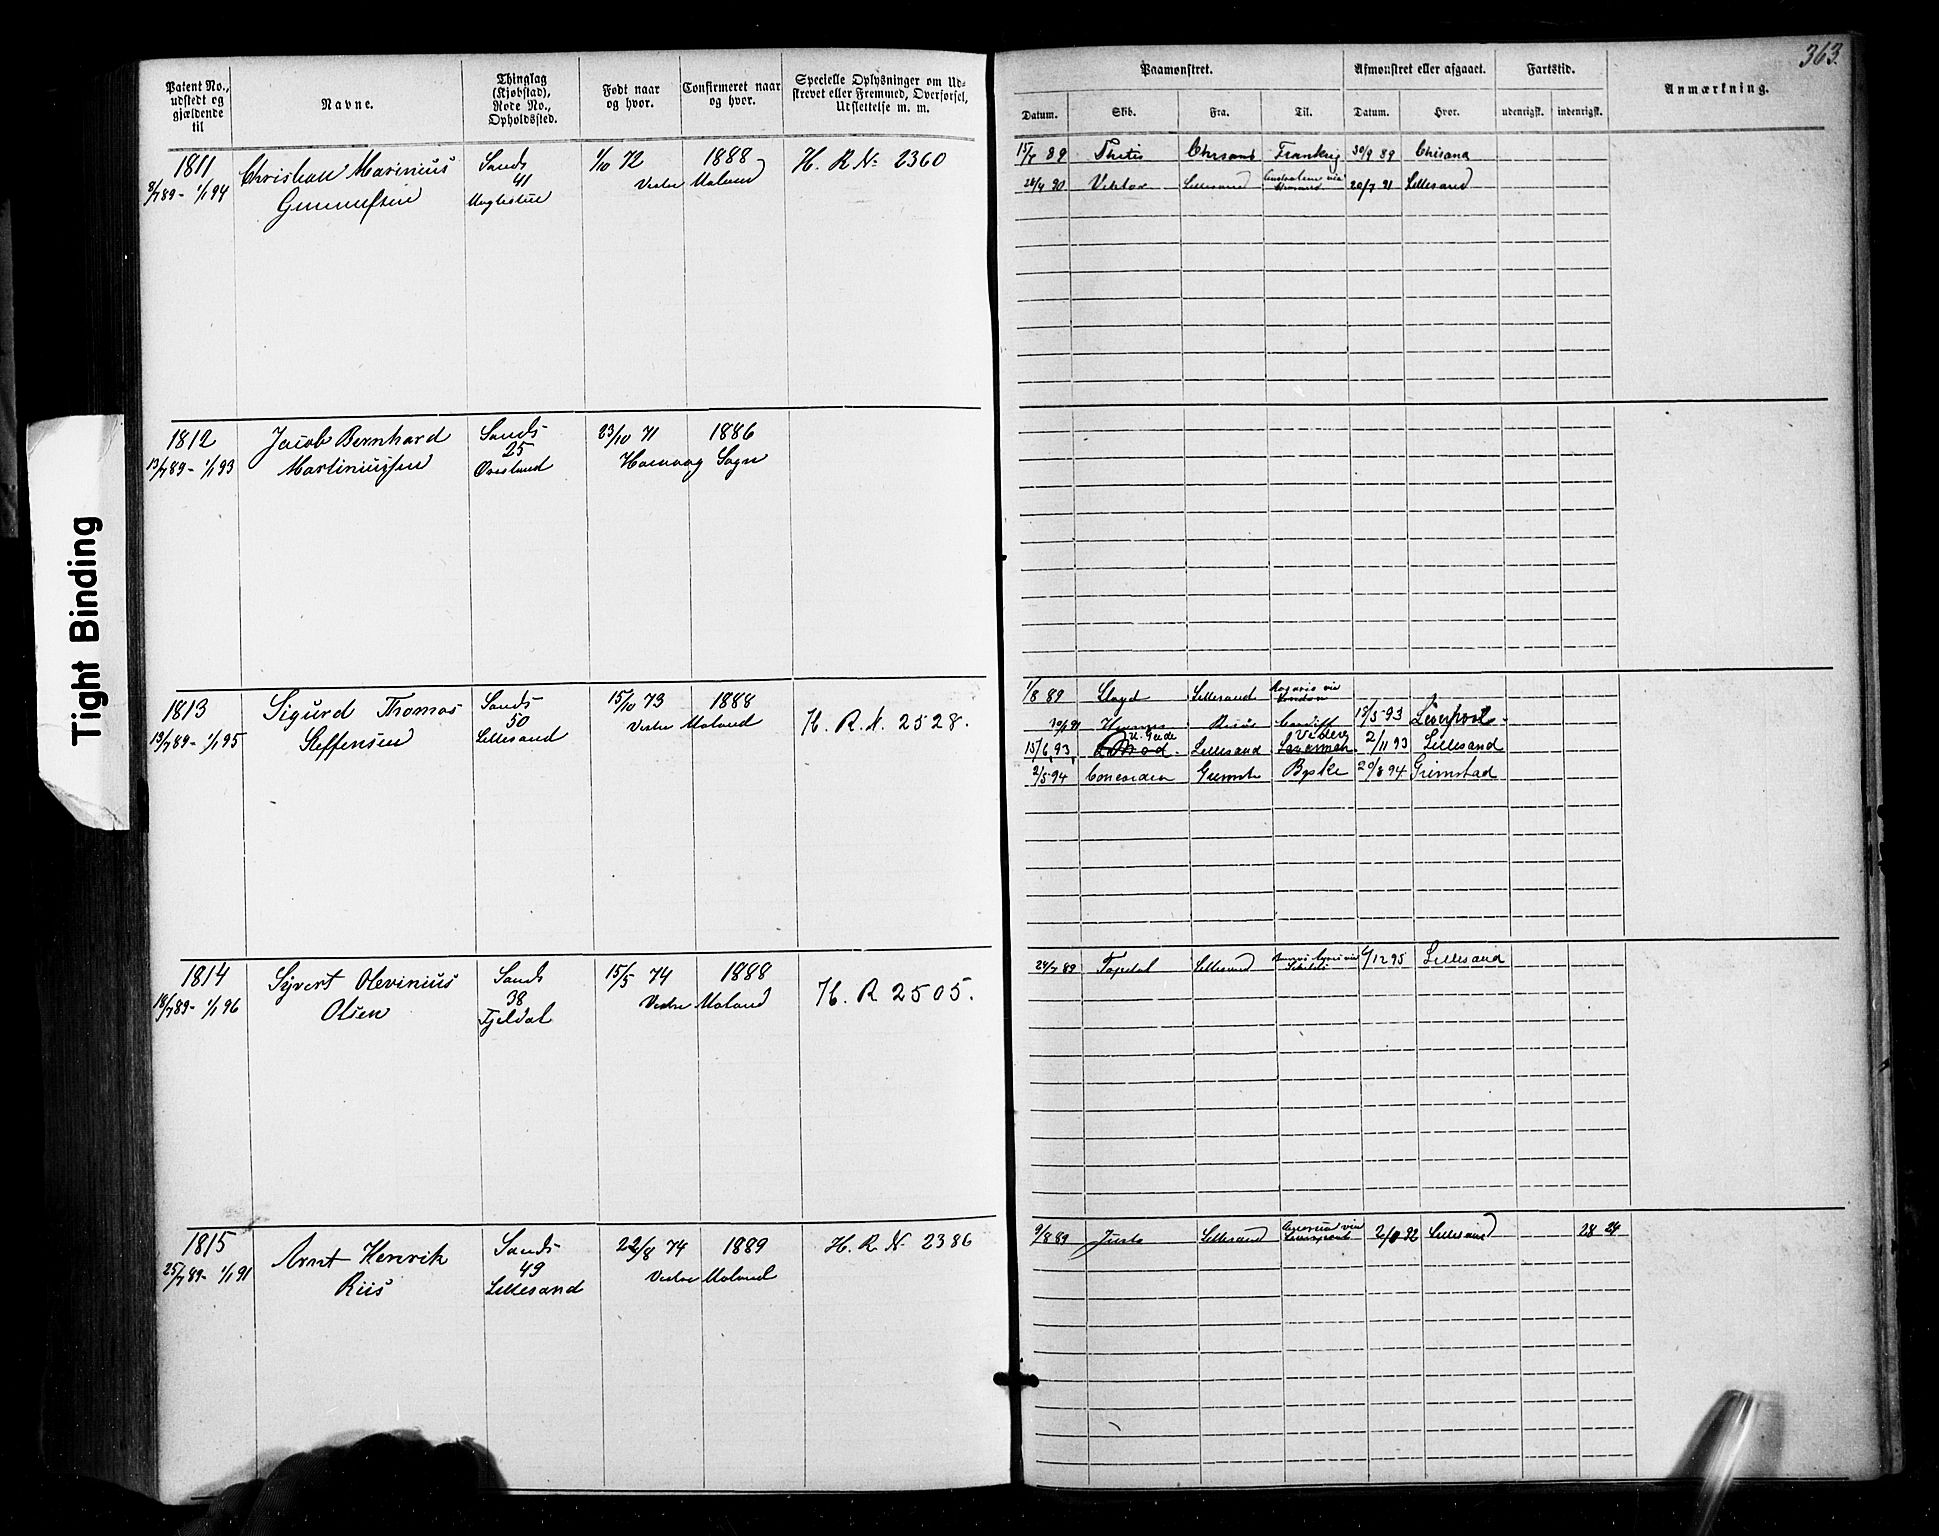 363.
Patent No., udstedt og gjældende til
Navne.
Thinglag (Kjøbstad), Rode No., Opholdssted.
Født naar og hvor.
Confirmeret naar og hvor.
Specielle Oplysninger om Udskrevet eller Fremmed, Overførsel, Udslettelse m. m.
Paamønstret.
Afmønstret eller afgaaet.
Fartstid.
Anmærkning.
Datum. Skib. Fra. Til. Datum. Hvor. udenrigsk. indenrigsk.
1811 Christian Marinius Sands 1/10 72 1888 H. R. No 2360
8/7 89 - 1/1 94 41 Vestre Moland
15/7 89 Thetis Chrsand Frankrig 30/9 89
26/4 90 Lillesand 20/7 91 Lillesand
1812 Jacob Bernhard Sands 23/10 71 1886
13/7 89 - 1/1 93 Martiniussen 25 Høivaag Sogn
1813 Sigurd Thomas Sands 15/10 73 1888 H. R. N. 2528.
13/7 89 - 1/1 95 Steffensen 50 Vestre Moland
Lillesand
1/8 89 Lloyd Lillesand
Cardiff 18/5 93 Liverpool
15/6 93 Lillesand 2/11 93 Lillesand
2/5 94 Concordia Grimst Byske 20/8 94 Grimstad
1814 Syvert Olevinius Sands 15/5 74 1888 H. R 2505.
18/7 89 - 1/1 96 Olsen 38 Vestre Moland
Tjeldal
24/7 89 Lillesand /12 95 Lillesand
1815 Arnt Henrik Sands 22/8 74 1889 H. R. N 2386
25/7 89 - 1/1 91 Riis 49 Vestre Moland
Lillesand
9/8 89 Lillesand 92 Lillesand 28 24
Tight Binding